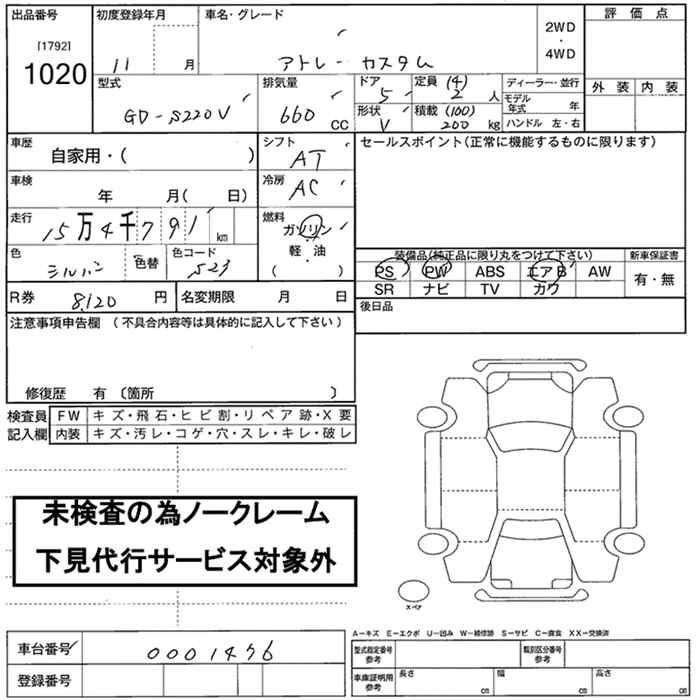 出品番号
[1792]
1020
初度登録年月
11 月
車名・グレード
アトレーカスタム
2WD
・
4WD
評価点
外装 内装
型式
GD-S220V
排気量
660 CC
ドア
5
形状
V
定員 (4)
2 人
積載 (100)
200 kg
ディーラー・並行
モデル年式 年
ハンドル 左・右
車歴
自家用・( )
シフト
AT
車検
年 月( 日)
冷房
AC
走行
15万4千791 km
燃料
ガソリン
・
軽・油
・
( )
色
シルバー
色替
色コード
S23
R券 8,120 円
名変期限 月 日
セールスポイント(正常に機能するものに限ります)
装備品(純正品に限り丸をつけて下さい)
新車保証書
PS PW ABS エアB AW
有・無
SR ナビ TV カワ
後日品
注意事項申告欄 (不具合内容等は具体的に記入して下さい)
修復歴 有 〔箇所 〕
検査員記入欄
FW キズ・飛石・ヒビ割・リペア跡・X要
内装 キズ・汚レ・コゲ・穴・スレ・キレ・破レ
未検査の為ノークレーム
下見代行サービス対象外
スペア
A-キズ E-エクボ U-凹み W-補修跡 S-サビ C-腐食 XX-交換済
車台番号 0001456
登録番号
型式指定番号 参考
類別区分番号 参考
車庫証明用 参考
長さ cm
幅 cm
高さ cm